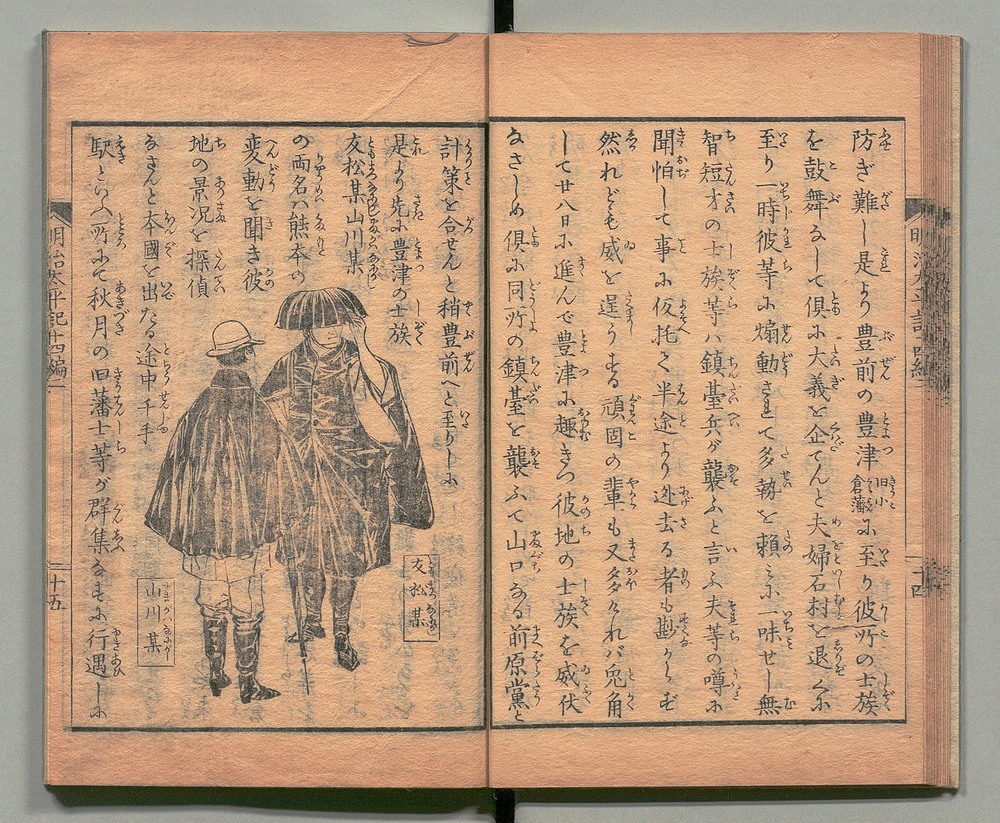 防ぎ難し是より豊前の豊津旧小倉藩に至り彼所の士族
を鼓舞なして倶に大義を企てんと夫婦石村を退くに
至り一時彼等に煽動されて多勢を頼みに一味せし無
智短才の士族等ハ鎮臺兵が襲ふと言ふ夫等の噂に
聞怕して事に仮托て半途より迯去る者も尠からず
然れども威を逞うする頑固の輩も又多くあれバ兎角
して廿八日に進んで豊津に趣きつ彼地の士族を威伏
なさしめ倶に同所の鎮臺を襲ふて山口なる前原黨と
計策を合せんと稍豊前へと至りしに
是より先に豊津の士族
友松某山川某
の両名ハ熊本の
変動を聞き彼
地の景况を探偵
なさんと本國を出たる途中千手
駅といへ所にて秋月の旧藩士等が群集なすに行遇しに
友松某
山川某
明治太平記十四編二
十五
十四